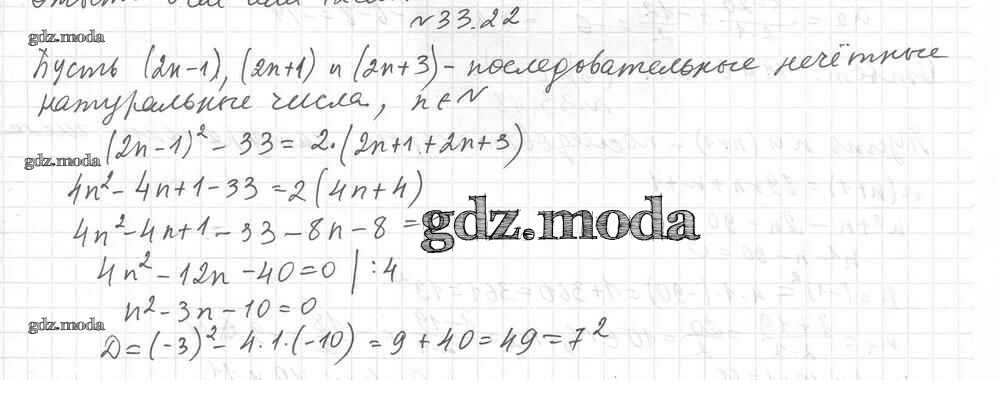 №33.22
gdz.moda
Пусть (2n-1), (2n+1) и (2n+3) - последовательные нечётные
натуральные числа, n∈N
(2n-1)² - 33 = 2·(2n+1+2n+3)
gdz.moda
4n² - 4n + 1 - 33 = 2(4n+4)
4n² - 4n + 1 - 33 - 8n - 8 =
gdz.moda
4n² - 12n - 40 = 0 | :4
n² - 3n - 10 = 0
gdz.moda
D = (-3)² - 4·1·(-10) = 9 + 40 = 49 = 7²